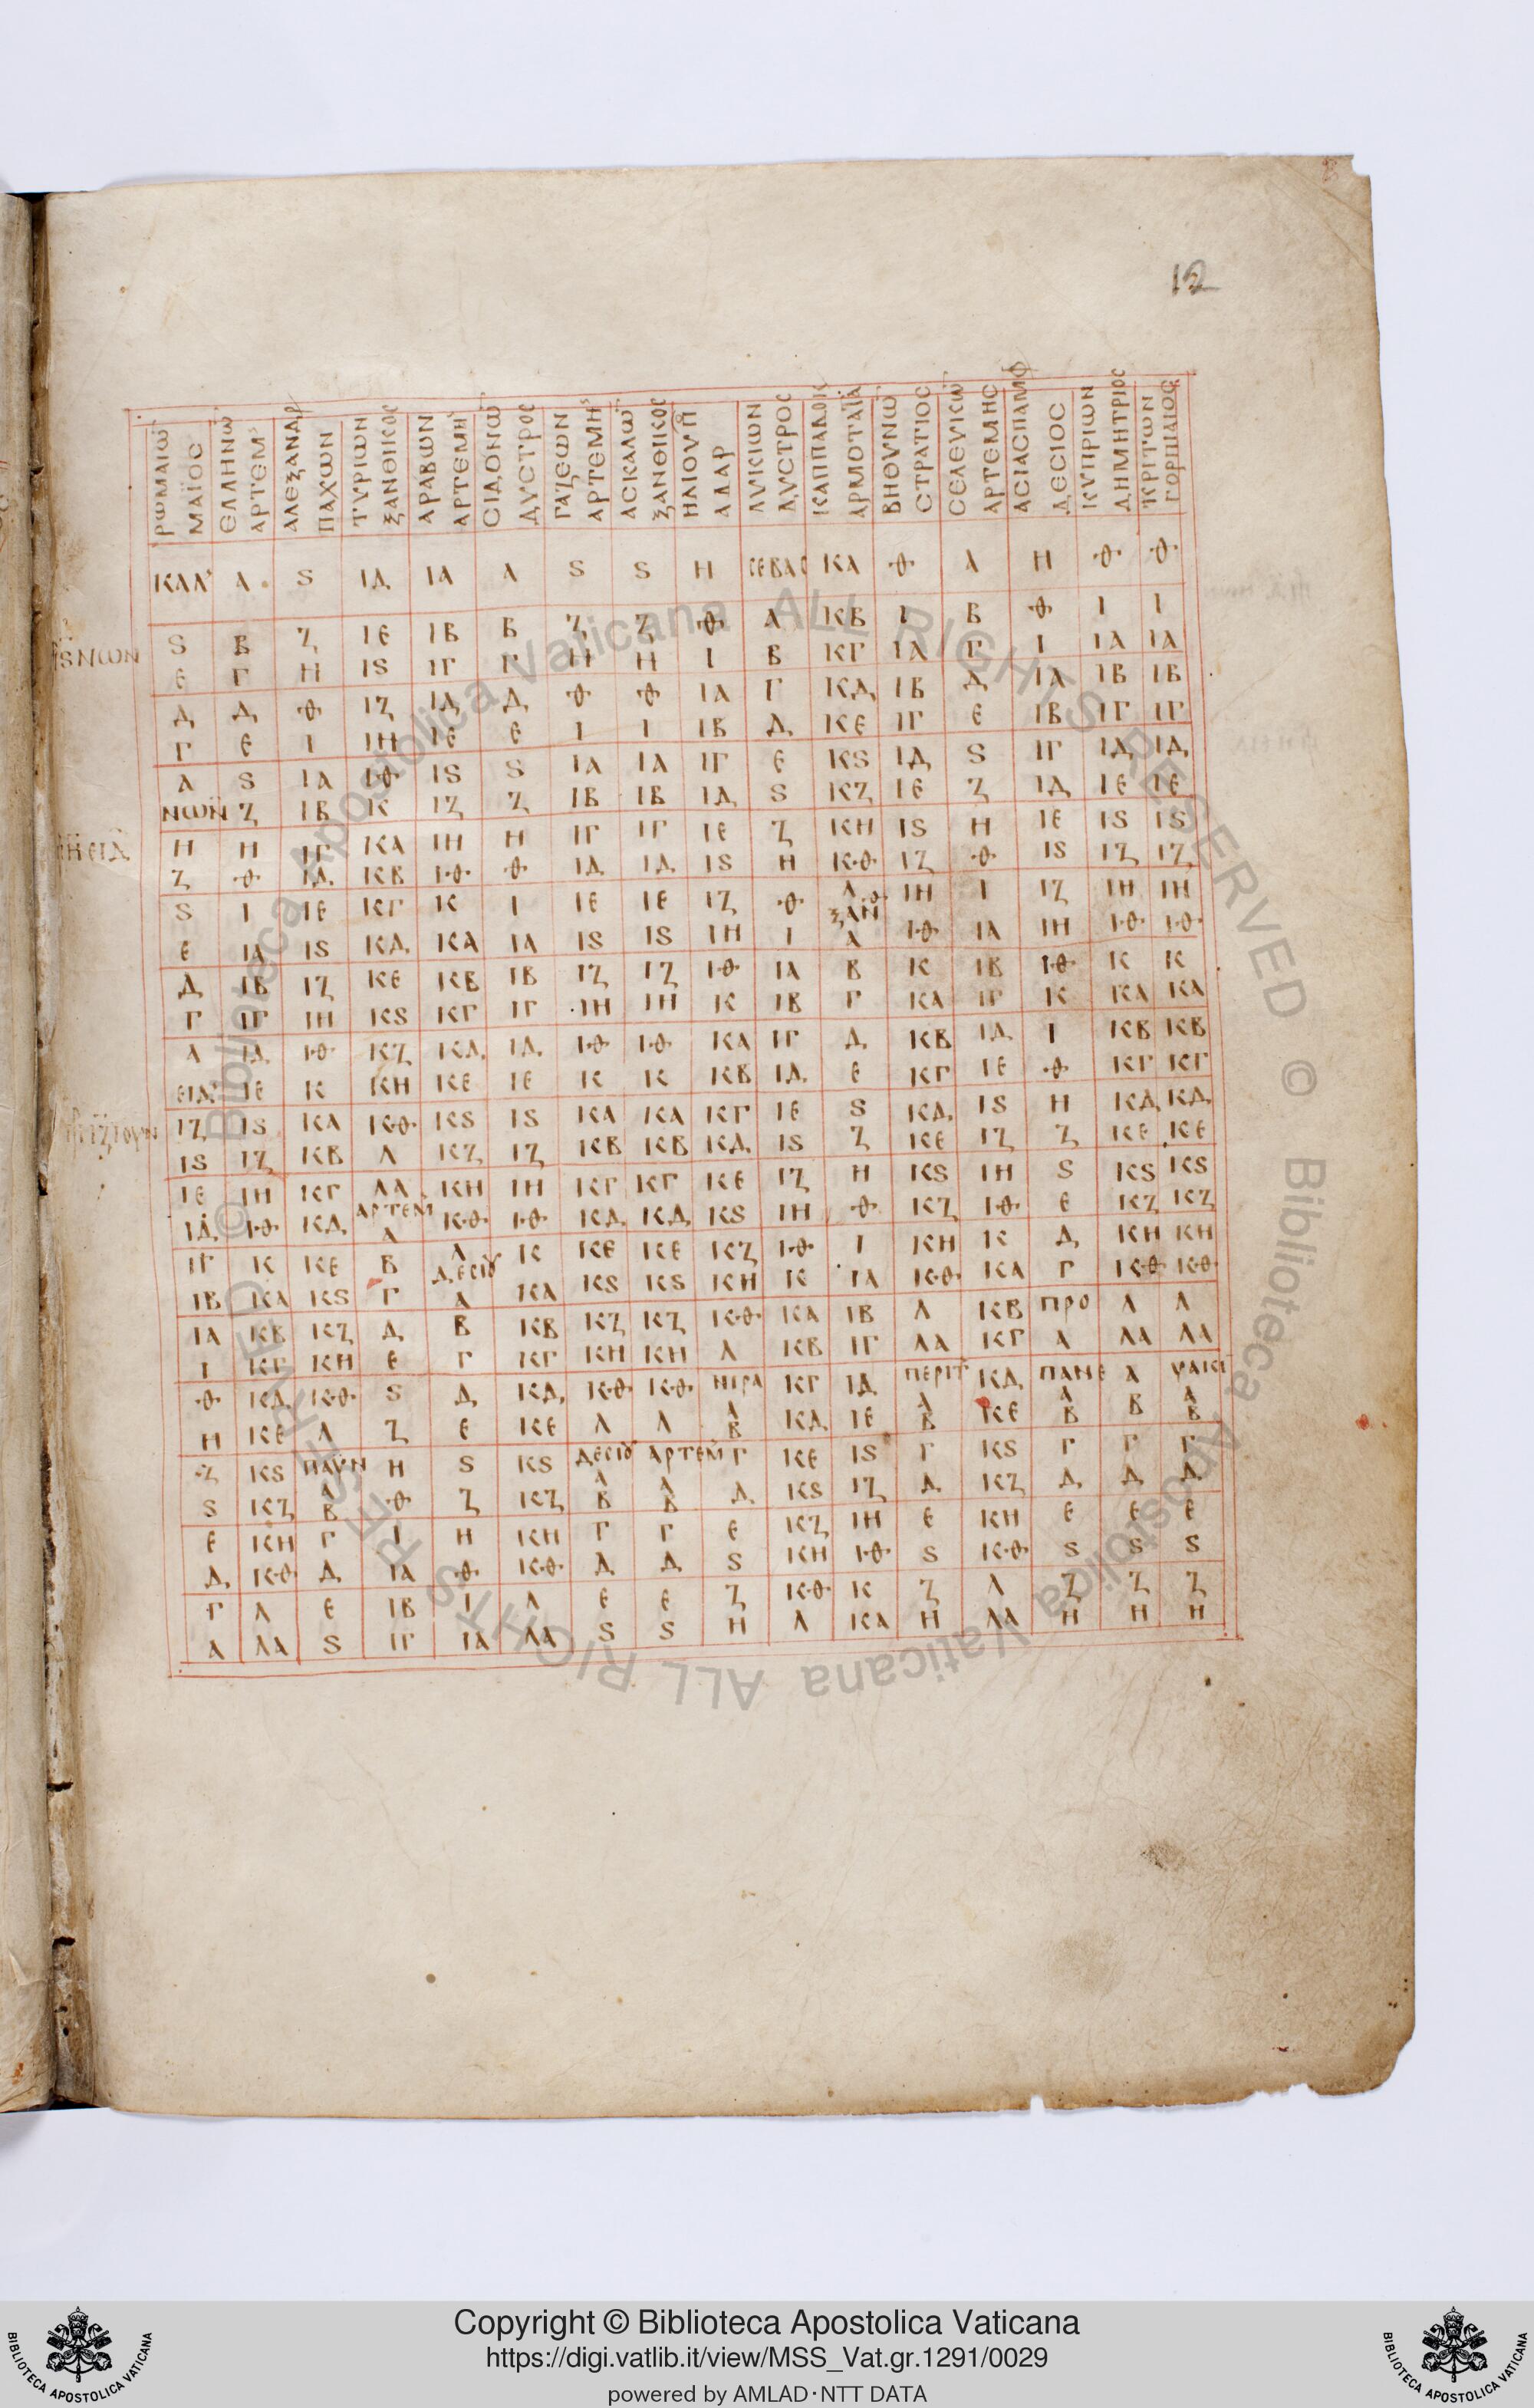 12
ΡΩΜΑΙΩ ΜΑΪΟC ΕΛΛΗΝΩ ΑΡΤΕΜ ΑΛΕΞΑΝΔΡ ΠΑΧΩΝ ΤΥΡΙΩΝ ΞΑΝΘΙΚΟC ΑΡΑΒΩΝ ΑΡΤΕΜΗ CΙΔΟΝΩ ΔΥCΤΡΟC ΓΑΖΕΩΝ ΑΡΤΕΜΗC ΑCΚΑΛΩ ΞΑΝΘΙΚΟC ΗΛΙΟΥΠ ΑΔΑΡ ΛΥΚΙΩΝ ΔΥCΤΡΟC ΚΑΠΠΑΔΟΚ ΑΡΜΟΤΑΪΑ ΒΗΘΥΝΩ CΤΡΑΤΙΟC CΕΛΕΥΚΙΩ ΑΡΤΕΜΗC ΑCΙΑCΠΑΜΦ ΔΕCΙΟC ΚΥΠΡΙΩΝ ΔΗΜΗΤΡΙΟC ΚΡΙΤΩΝ ΓΟΡΠΙΑΙΟC
ΚΑΛ Α S ΙΔ ΙΑ Α S S Η CΕΒΑC ΚΑ Θ Α Η Θ Θ
S Β Ζ ΙΕ ΙΒ Β Ζ Ζ Θ Α ΚΒ Ι Β Θ Ι Ι
SΝΩΝ
Ε Γ Η ΙS ΙΓ Γ Η Η Ι Β ΚΓ ΙΑ Γ Ι ΙΑ ΙΑ
Δ Δ Θ ΙΖ ΙΔ Δ Θ Θ ΙΑ Γ ΚΔ ΙΒ Δ ΙΑ ΙΒ ΙΒ
Γ Ε Ι ΙΗ ΙΕ Ε Ι Ι ΙΒ Δ ΚΕ ΙΓ Ε ΙΒ ΙΓ ΙΓ
Α S ΙΑ ΙΘ ΙS S ΙΑ ΙΑ ΙΓ Ε ΚS ΙΔ S ΙΓ ΙΔ ΙΔ
ΝΩΝ Ζ ΙΒ Κ ΙΖ Ζ ΙΒ ΙΒ ΙΔ S ΚΖ ΙΕ Ζ ΙΔ ΙΕ ΙΕ
Η Η ΙΓ ΚΑ ΙΗ Η ΙΓ ΙΓ ΙΕ Ζ ΚΗ ΙS Η ΙΕ ΙS ΙS
ΗΕΙΔ
Ζ Θ ΙΔ ΚΒ ΙΘ Θ ΙΔ ΙΔ ΙS Η ΚΘ ΙΖ Θ ΙS ΙΖ ΙΖ
S Ι ΙΕ ΚΓ Κ Ι ΙΕ ΙΕ ΙΖ Θ Λ ΙΗ Ι ΙΖ ΙΗ ΙΗ
Ε ΙΑ ΙS ΚΔ ΚΑ ΙΑ ΙS ΙS ΙΗ Ι ΞΑΝ Α ΙΘ ΙΑ ΙΗ ΙΘ ΙΘ
Δ ΙΒ ΙΖ ΚΕ ΚΒ ΙΒ ΙΖ ΙΖ ΙΘ ΙΑ Β Κ ΙΒ ΙΘ Κ Κ
Γ ΙΓ ΙΗ ΚS ΚΓ ΙΓ ΙΗ ΙΗ Κ ΙΒ Γ ΚΑ ΙΓ Κ ΚΑ ΚΑ
Α ΙΔ ΙΘ ΚΖ ΚΔ ΙΔ ΙΘ ΙΘ ΚΑ ΙΓ Δ ΚΒ ΙΔ Ι ΚΒ ΚΒ
ΕΙΔ ΙΕ Κ ΚΗ ΚΕ ΙΕ Κ Κ ΚΒ ΙΔ Ε ΚΓ ΙΕ Θ ΚΓ ΚΓ
ΙΖ ΙS ΚΑ ΚΘ ΚS ΙS ΚΑ ΚΑ ΚΓ ΙΕ S ΚΔ ΙS Η ΚΔ ΚΔ
ΙS ΙΖ ΚΒ Λ ΚΖ ΙΖ ΚΒ ΚΒ ΚΔ ΙS Ζ ΚΕ ΙΖ Ζ ΚΕ ΚΕ
ΙΕ ΙΗ ΚΓ ΛΑ ΚΗ ΙΗ ΚΓ ΚΓ ΚΕ ΙΖ Η ΚS ΙΗ S ΚS ΚS
ΙΔ ΙΘ ΚΔ ΑΡΤΕΜ Α ΚΘ ΙΘ ΚΔ ΚΔ ΚS ΙΗ Θ ΚΖ ΙΘ Ε ΚΖ ΚΖ
ΙΓ Κ ΚΕ Β Λ Κ ΚΕ ΚΕ ΚΖ ΙΘ Ι ΚΗ Κ Δ ΚΗ ΚΗ
ΙΒ ΚΑ ΚS Γ ΔΕCΙΟΥ Α ΚΑ ΚS ΚS ΚΗ Κ ΙΑ ΚΘ ΚΑ Γ ΚΘ ΚΘ
ΙΑ ΚΒ ΚΖ Δ Β ΚΒ ΚΖ ΚΖ ΚΘ ΚΑ ΙΒ Λ ΚΒ ΠΡΟ Λ Λ
Ι ΚΓ ΚΗ Ε Γ ΚΓ ΚΗ ΚΗ Λ ΚΒ ΙΓ ΛΑ ΚΓ Α ΛΑ ΛΑ
Θ ΚΔ ΚΘ S Δ ΚΔ ΚΘ ΚΘ ΗΙΡΑ Α ΚΓ ΙΔ ΠΕΡΙΤ Α ΚΔ ΠΑΝΕ Α Α ΥΑΚΙ Α
Η ΚΕ Λ Ζ Ε ΚΕ Λ Λ Β ΚΔ ΙΕ Β ΚΕ Β Β Β
Ζ ΚS ΠΑΥΝ Α Η S ΚS ΔΕCΙΟΥ Α ΑΡΤΕΜ Α Γ ΚΕ ΙS Γ ΚS Γ Γ Γ
S ΚΖ Β Θ Ζ ΚΖ Β Β Δ ΚS ΙΖ Δ ΚΖ Δ Δ Δ
Ε ΚΗ Γ Ι Η ΚΗ Γ Γ Ε ΚΖ ΙΗ Ε ΚΗ Ε Ε Ε
Δ ΚΘ Δ ΙΑ Θ ΚΘ Δ Δ S ΚΗ ΙΘ S ΚΘ S S S
Γ Λ Ε ΙΒ Ι Λ Ε Ε Ζ ΚΘ Κ Ζ Λ Ζ Ζ Ζ
Α ΛΑ S ΙΓ ΙΑ ΛΑ S S Η Λ ΚΑ Η ΛΑ Η Η Η
© Biblioteca Apostolica Vaticana ALL RIGHTS RESERVED © Biblioteca Apostolica Vaticana ALL RIGHTS RESERVED
Copyright © Biblioteca Apostolica Vaticana
https://digi.vatlib.it/view/MSS_Vat.gr.1291/0029
powered by AMLAD·NTT DATA
BIBLIOTECA APOSTOLICA VATICANA
BIBLIOTECA APOSTOLICA VATICANA